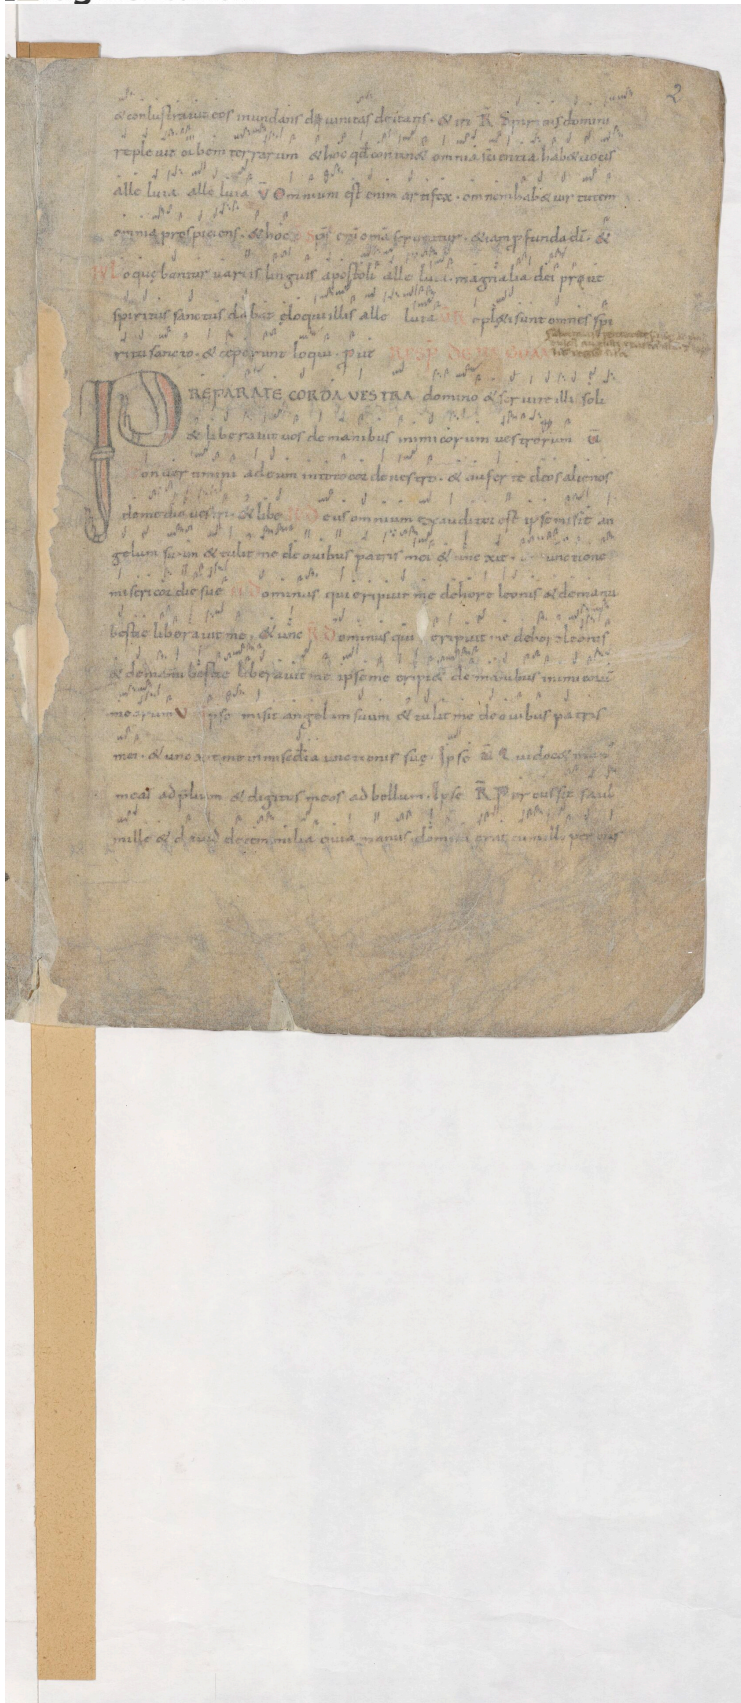 2
& conlustravit eos inundans divinitas deitatis · & iti R̄ Spiritus domini
replevit orbem terrarum & hoc qđ continet omnia scientia hab& vocis
alleluia alleluia V̄ Omnium est enim artifex · omnem hab& virtutem
omnia prospiciens · & hoc
Loquebantur variis linguis apostoli alleluia · magnalia dei prout
spiritus sanctus dabat eloqui illis alleluia R Repl& i sunt omnes spi
ritu sancto · & ceperunt loqui · put RESP DE REGUM
PREPARATE CORDA VESTRA domino & servite illi soli
& liberavit vos de manibus inimicorum vestrorum V̄
onvertimini ad eum in toto corde vestro · & auferte deos alienos
de medio vestri · & libe R Deus omnium exauditor est ipse misit an
gelum suum & tulit me de ovibus patris mei & unxit unctione
misericordie sue R Dominus qui eripuit me de hore leonis & de manu
bestie liberavit me · & unc R Dominus qui eripuit me de hore leonis
& de manu bestie liberavit me ipse me eripi& de manibus inimicorū
meorum V Ipse misit angelum suum & tulit me de ovibus patris
mei · & uncxit me in misedia unctionis suę · Ipse V̄ Qui doc& man
meas ad plium & digitos meos ad bellum · Ipse R̄ Percussit saul
mille & david decem milia quia manus domini erat cum illo percus